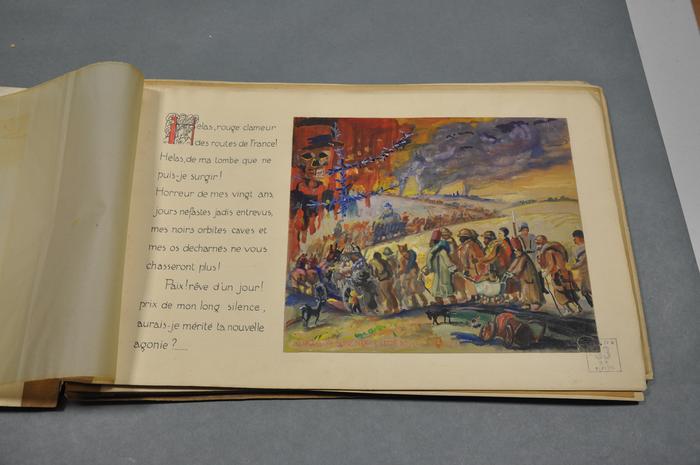 Hélas, rouge clameur
des routes de France!
Hélas, de ma tombe que ne
puis-je surgir!
Horreur de mes vingt ans,
jours néfastes jadis entrevus,
mes noirs orbites caves et
mes os décharnés ne vous
chasseront plus!
Paix! rêve d'un jour!
prix de mon long silence,
aurais-je mérité ta nouvelle
agonie?